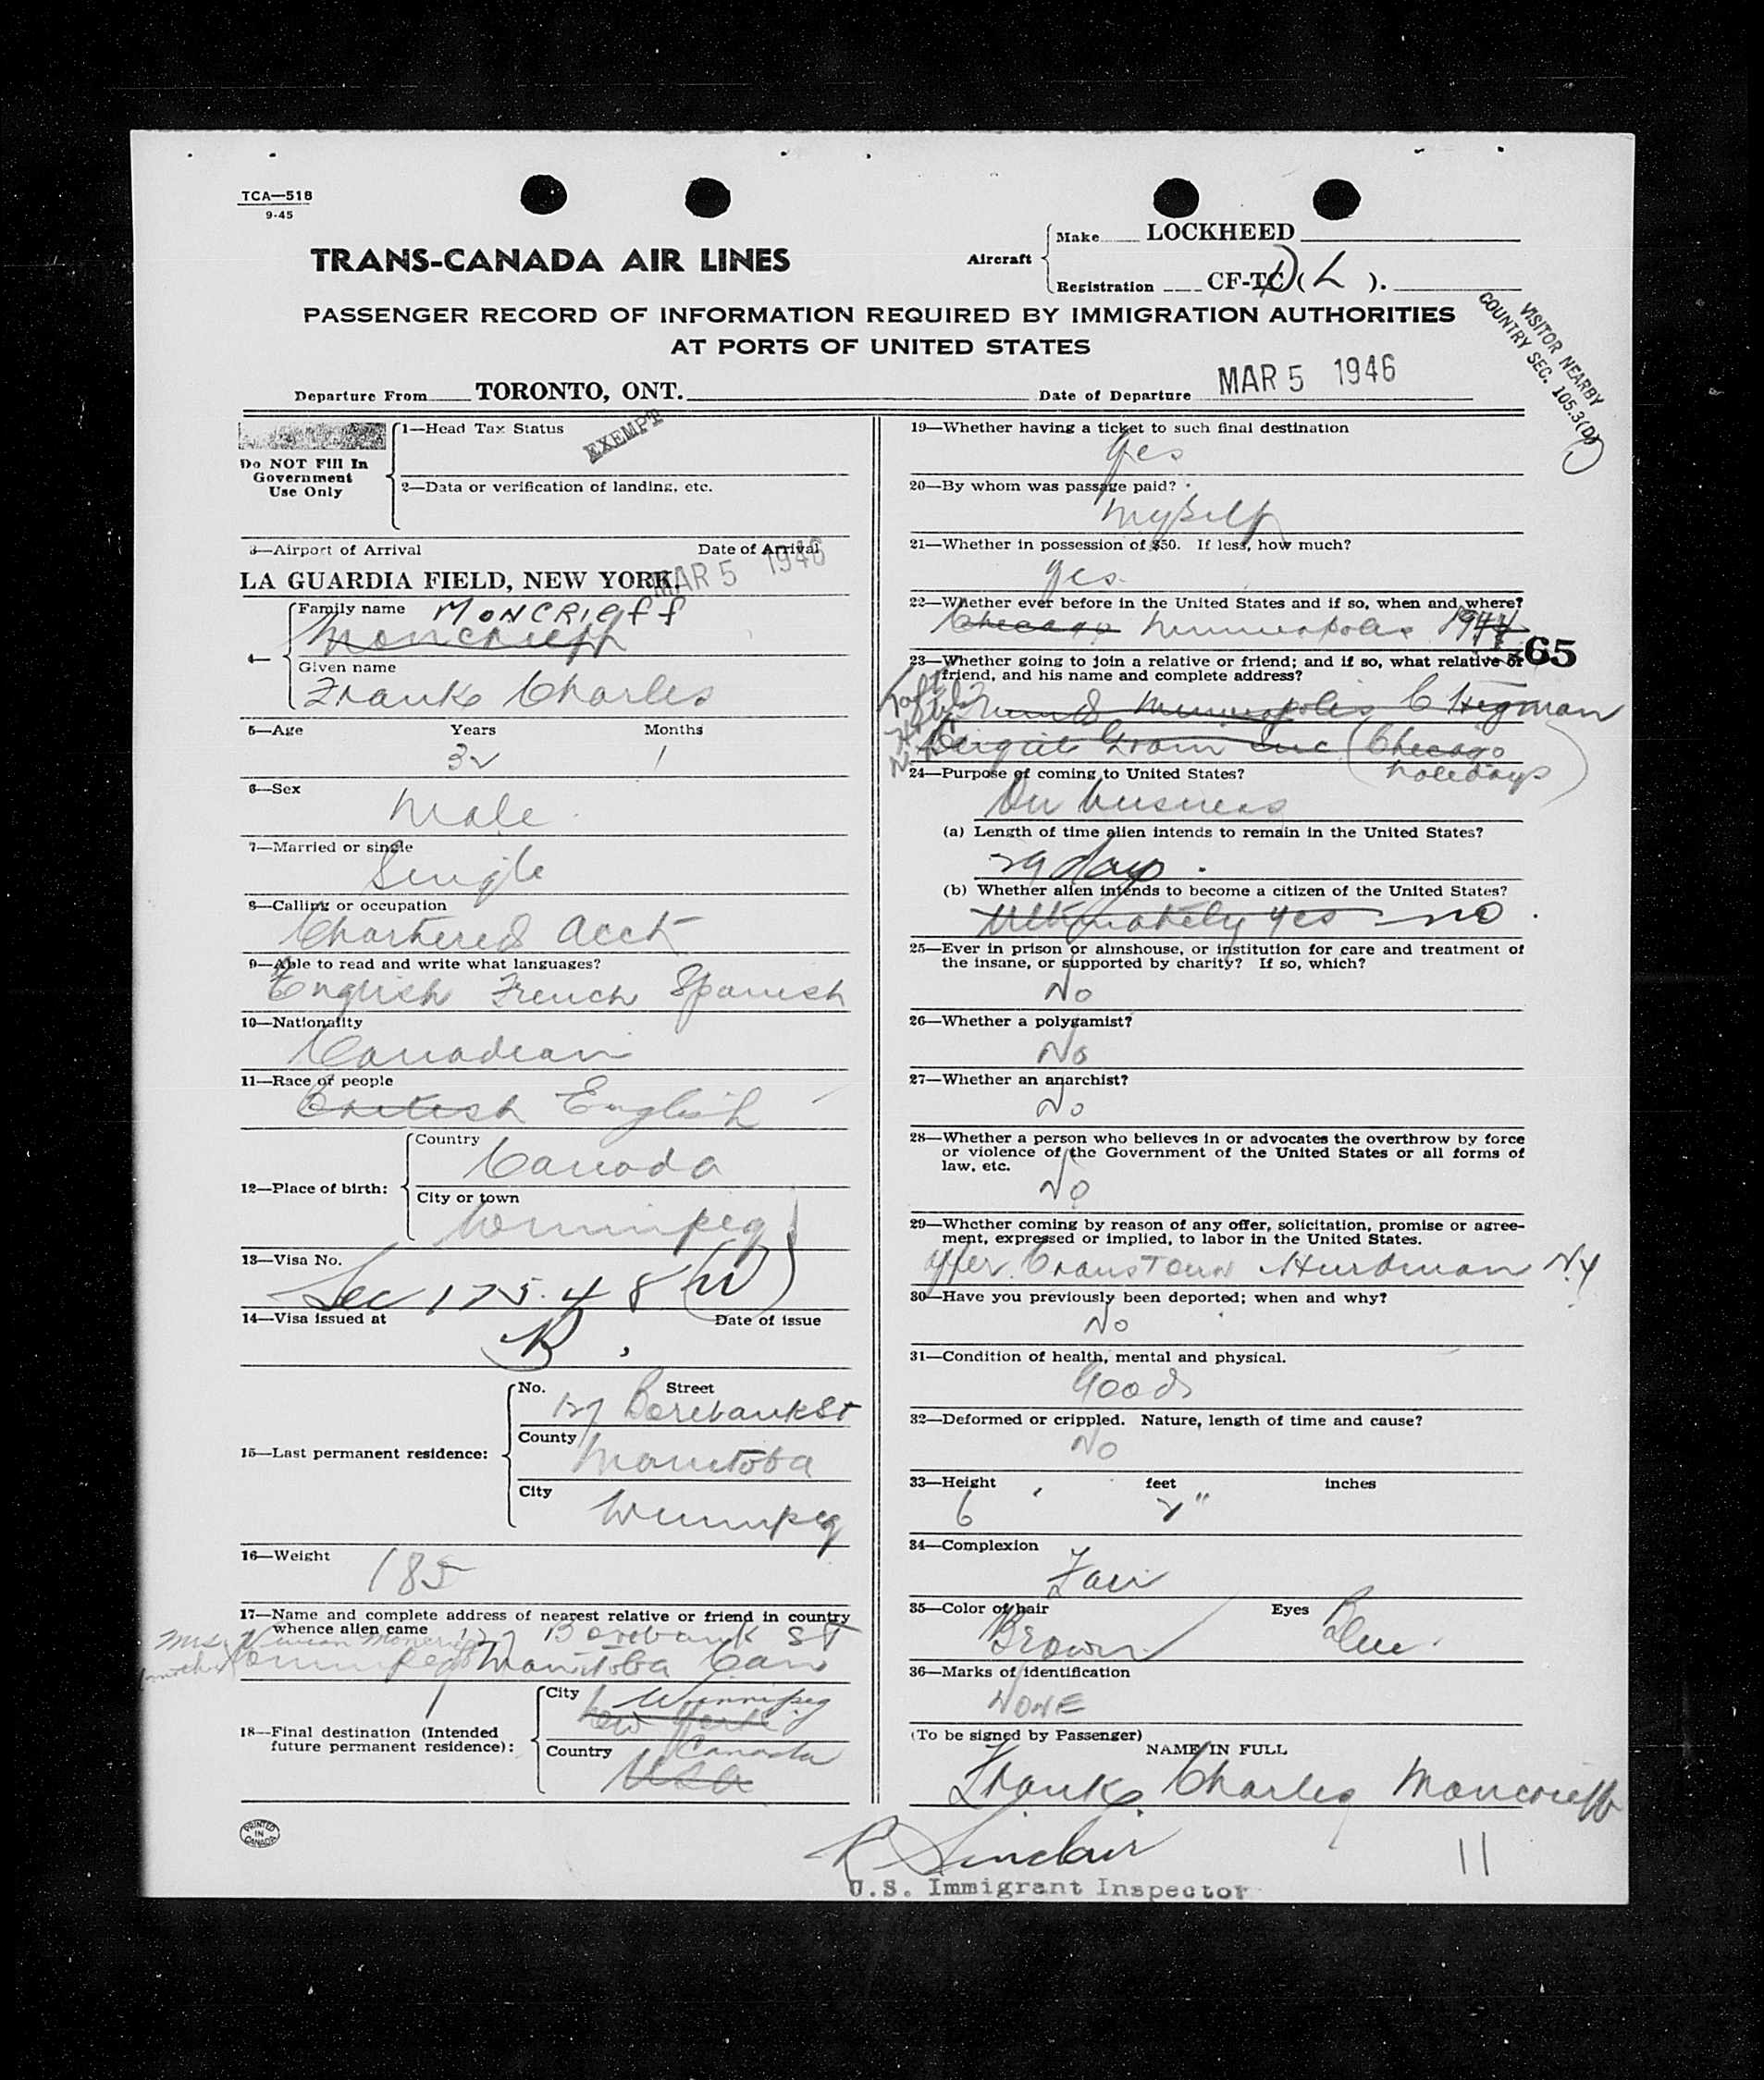 TCA—518
9-45
TRANS-CANADA AIR LINES
Aircraft
Make LOCKHEED
Registration CF-TC D ( L ).
PASSENGER RECORD OF INFORMATION REQUIRED BY IMMIGRATION AUTHORITIES
AT PORTS OF UNITED STATES
VISITOR NEARBY
COUNTRY SEC. 105.3(D)
Departure From TORONTO, ONT.
Date of Departure MAR 5 1946
Do NOT Fill In
Government
Use Only
1—Head Tax Status
EXEMPT
2—Data or verification of landing, etc.
3—Airport of Arrival Date of Arrival
LA GUARDIA FIELD, NEW YORK. MAR 5 1946
4—
Family name MONCRIEFF
Moncrieff
Given name
Frank Charles
5—Age Years Months
32 1
6—Sex
Male
7—Married or single
Single
8—Calling or occupation
Chartered Acct
9—Able to read and write what languages?
English French Spanish
10—Nationality
Canadian
11—Race or people
British English
12—Place of birth:
Country
Canada
City or town
Winnipeg
13—Visa No.
Sec 175.48 (W)
14—Visa issued at Date of issue
15—Last permanent residence:
No. Street
127 Borebank St
County
Manitoba
City
Winnipeg
16—Weight
185
17—Name and complete address of nearest relative or friend in country
whence alien came
Mrs Vivian Moncrieff 127 Borebank ST
mother Winnipeg Manitoba Can
18—Final destination (Intended
future permanent residence):
City Winnipeg
New York
Country Canada
USA
PRINTED
IN
CANADA
19—Whether having a ticket to such final destination
Yes
20—By whom was passage paid?
Myself
21—Whether in possession of $50. If less, how much?
Yes
22—Whether ever before in the United States and if so, when and where?
Chicago Minneapolis 1944
65
23—Whether going to join a relative or friend; and if so, what relative or
friend, and his name and complete address?
Taft Hotel N.Y.
Friend Minneapolis C Higman
Cargill Grain Inc (Chicago
holidays)
24—Purpose of coming to United States?
On business
(a) Length of time alien intends to remain in the United States?
29 days.
(b) Whether alien intends to become a citizen of the United States?
Ultimately yes no.
25—Ever in prison or almshouse, or institution for care and treatment of
the insane, or supported by charity? If so, which?
No
26—Whether a polygamist?
No
27—Whether an anarchist?
No
28—Whether a person who believes in or advocates the overthrow by force
or violence of the Government of the United States or all forms of
law, etc.
No
29—Whether coming by reason of any offer, solicitation, promise or agree-
ment, expressed or implied, to labor in the United States.
offer Hurdman N.Y.
30—Have you previously been deported; when and why?
No
31—Condition of health, mental and physical.
Good
32—Deformed or crippled. Nature, length of time and cause?
No
33—Height feet inches
6 ' 2"
34—Complexion
Fair
35—Color of hair Eyes
Brown Blue
36—Marks of identification
NONE
(To be signed by Passenger)
NAME IN FULL
Frank Charles Moncrieff
R Sinclair
11
U.S. Immigrant Inspector